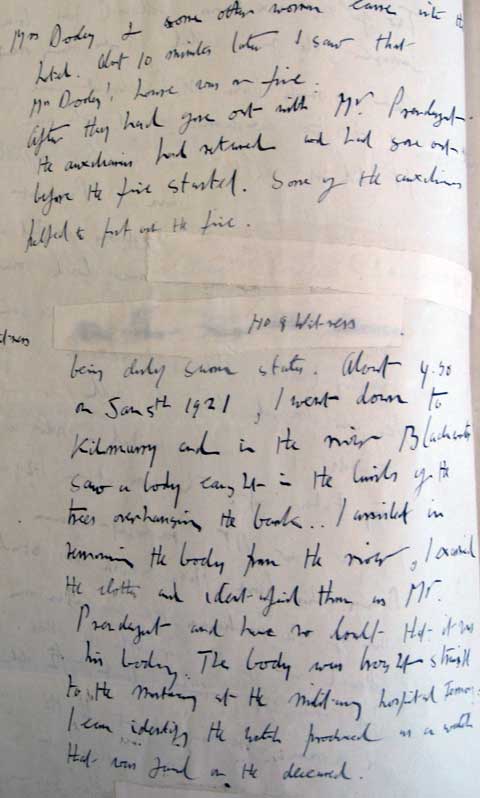 Mrs Dooley & some other women came into the
hotel. Abt 10 minutes later I saw that
Mrs Dooley's house was on fire.
After they had gone out with Mr. Prendergast.
the auxiliaries had returned and had gone out
before the fire started. Some of the auxiliaries
helped to put out the fire.
No 9 Witness
itness
being duly sworn states. About 4.30
on Jan 5th 1921, I went down to
Kilmurry and in the river Blackwater
saw a body caught in the limbs of the
trees overhanging the bank.. I assisted in
removing the body from the river, I examined
the clothes and identified them as Mr.
Prendergast and have no doubt that it was
his body. The body was brought straight
to the mortuary at the military hospital Fermoy.
I can identify the watch produced as a watch
that was found on the deceased.